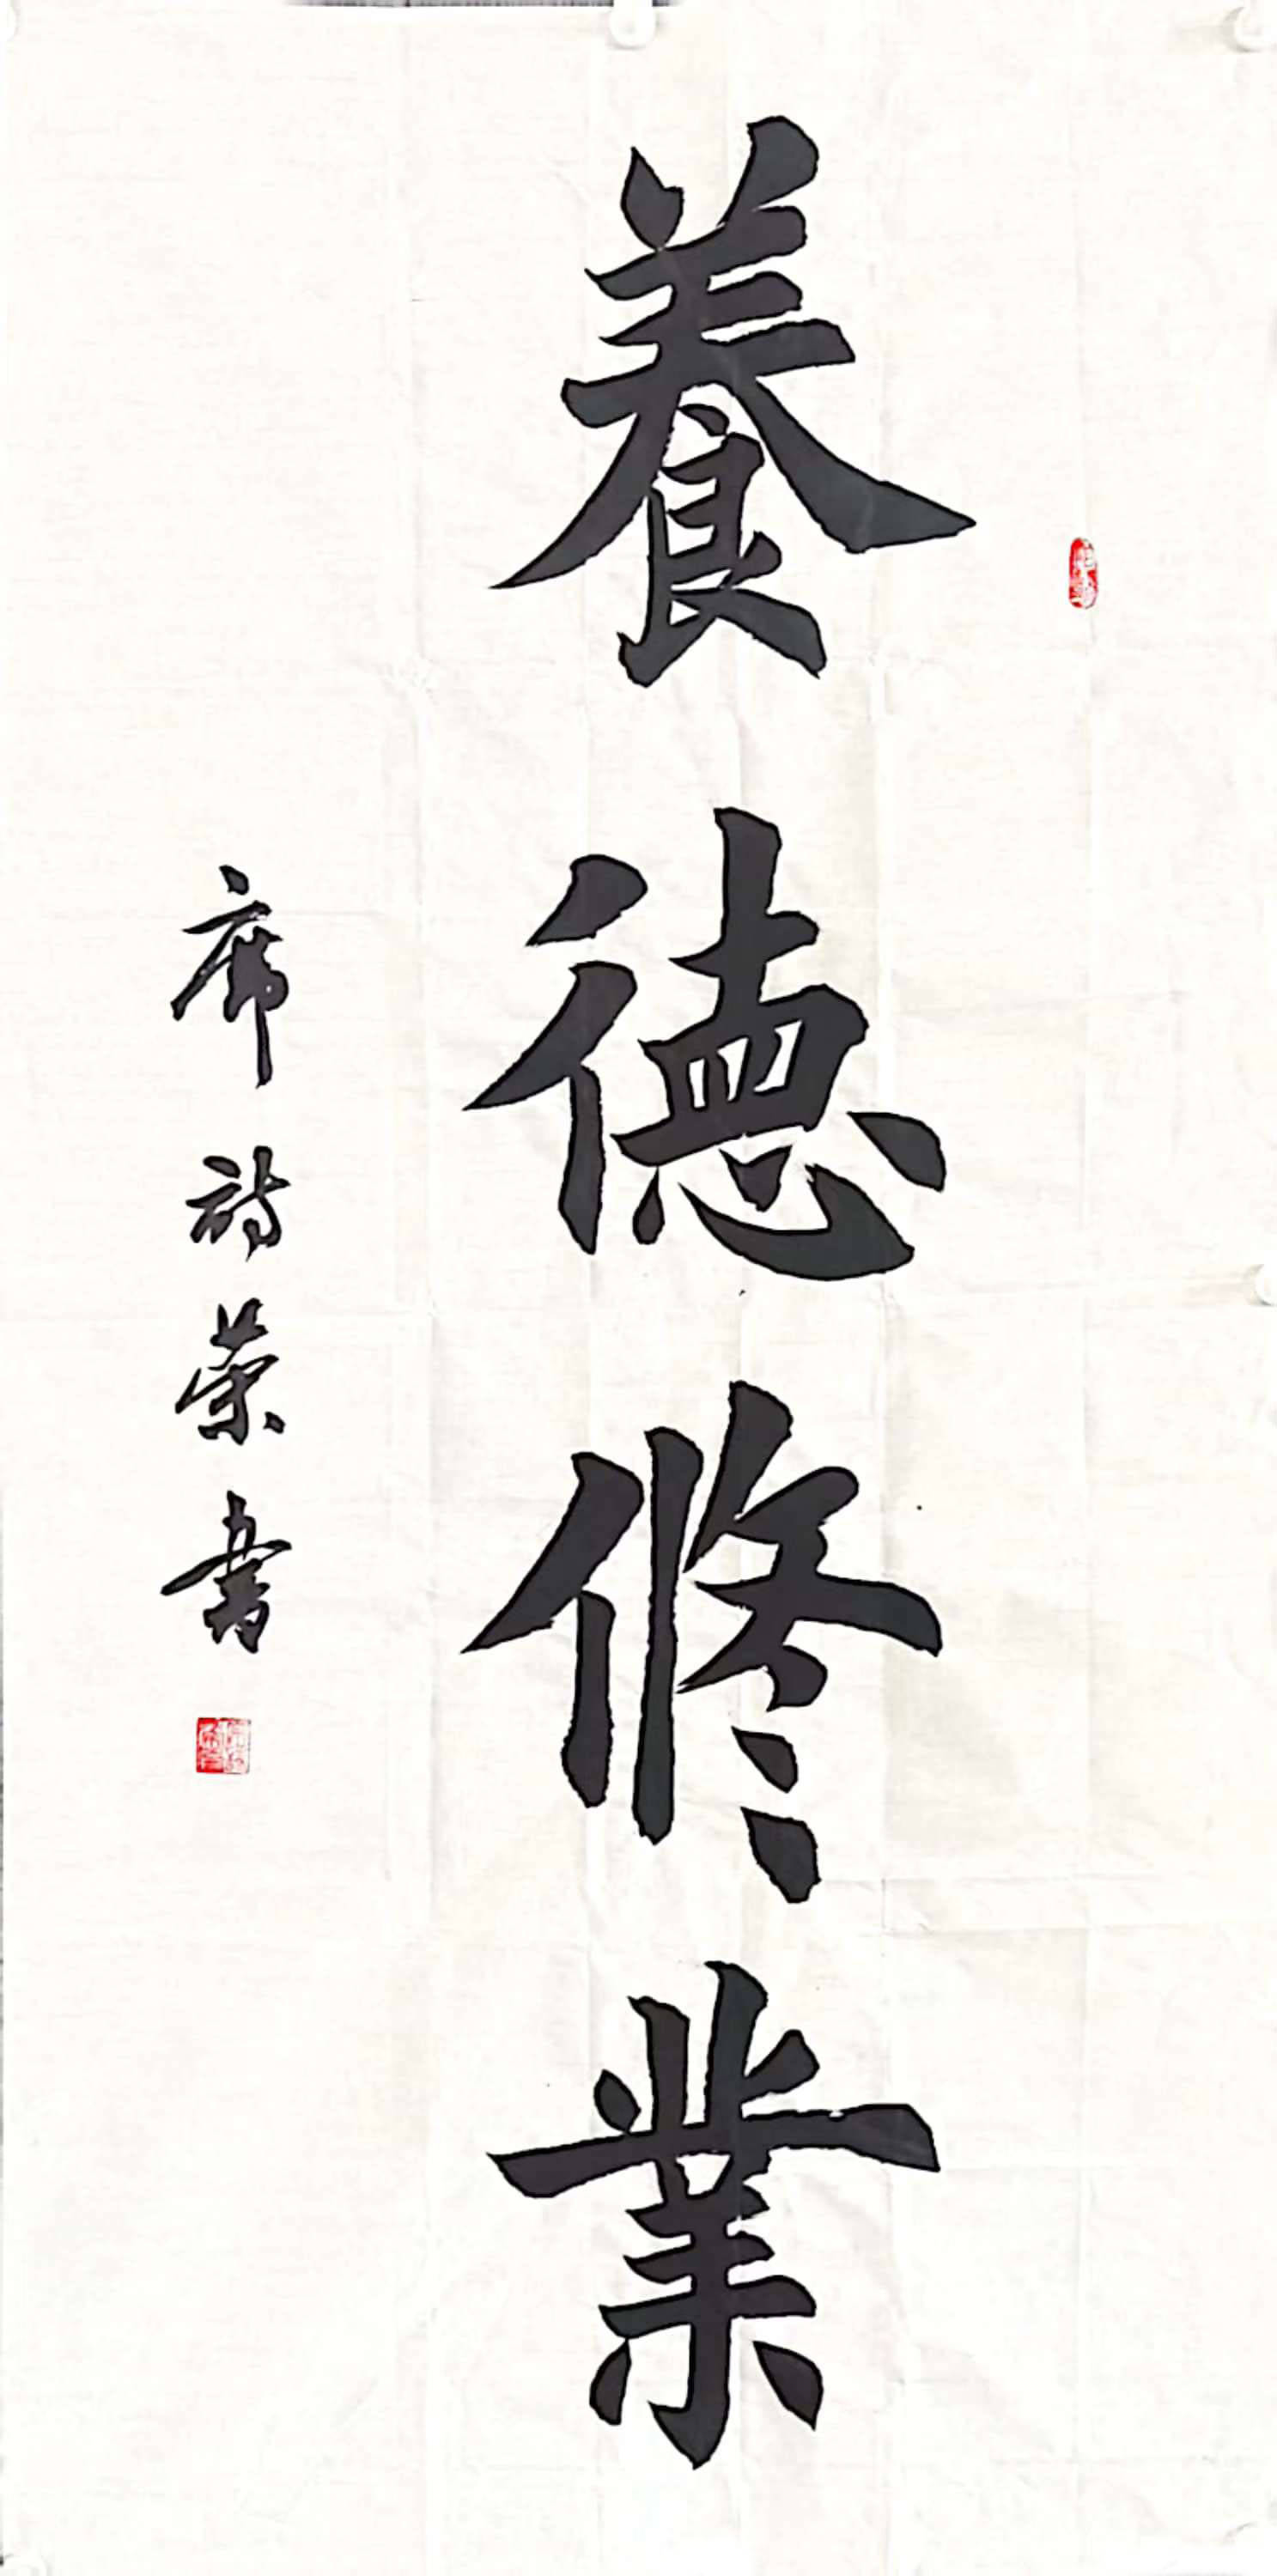 養德修業
席詩荣書